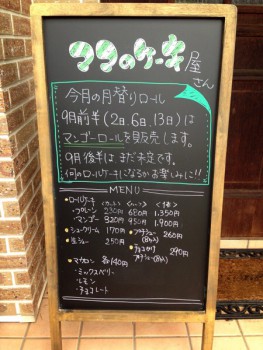 ココのケーキ屋さん
今月の月替りロール
9月前半(2日、6日、13日)は
マンゴーロールを販売します。
9月後半はまだ未定です。
何のロールケーキになるかお楽しみに!!
MENU
・ロールケーキ
・プレーン 230円 680円 1,350円
・マンゴー 320円 950円 1,900円
・シュークリーム 170円
260円
・生ショコ 250円
290円
・マカロン 各140円
・ミックスベリー
・レモン
・チョコレート